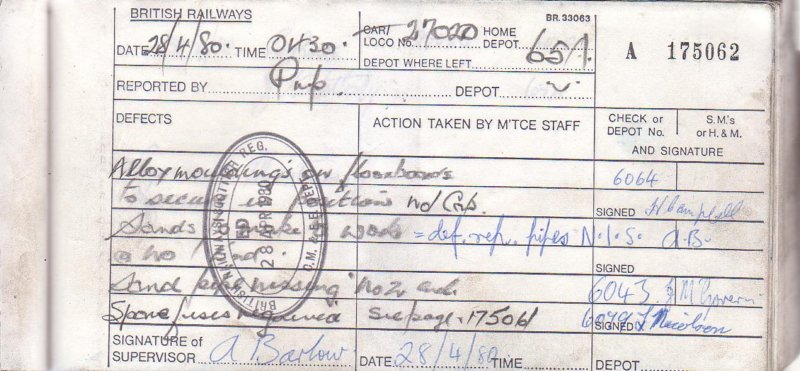 BRITISH RAILWAYS
BR. 33063
DATE 28/4/80. TIME 0430. CAR/LOCO No. 27020 HOME DEPOT 65A.
A 175062
DEPOT WHERE LEFT
REPORTED BY Prep. DEPOT
DEFECTS
ACTION TAKEN BY M'TCE STAFF
CHECK or DEPOT No.
S.M.'s or H. & M.
AND SIGNATURE
Alloy mouldings on floorboards
6064
to secure in position No 1 Cab.
SIGNED H Campbell
Sands work = def. rep. pipes N.I.S. A.B.
@ no 1 end.
SIGNED
Sand pipe missing No 2 end.
6043 J McGovern
Spare fuses required See page. 175061
6079 SIGNED
SIGNATURE of SUPERVISOR A Barlow DATE 28/4/80 TIME DEPOT
28 APR 1980
D.M. & S.E. DEPOT